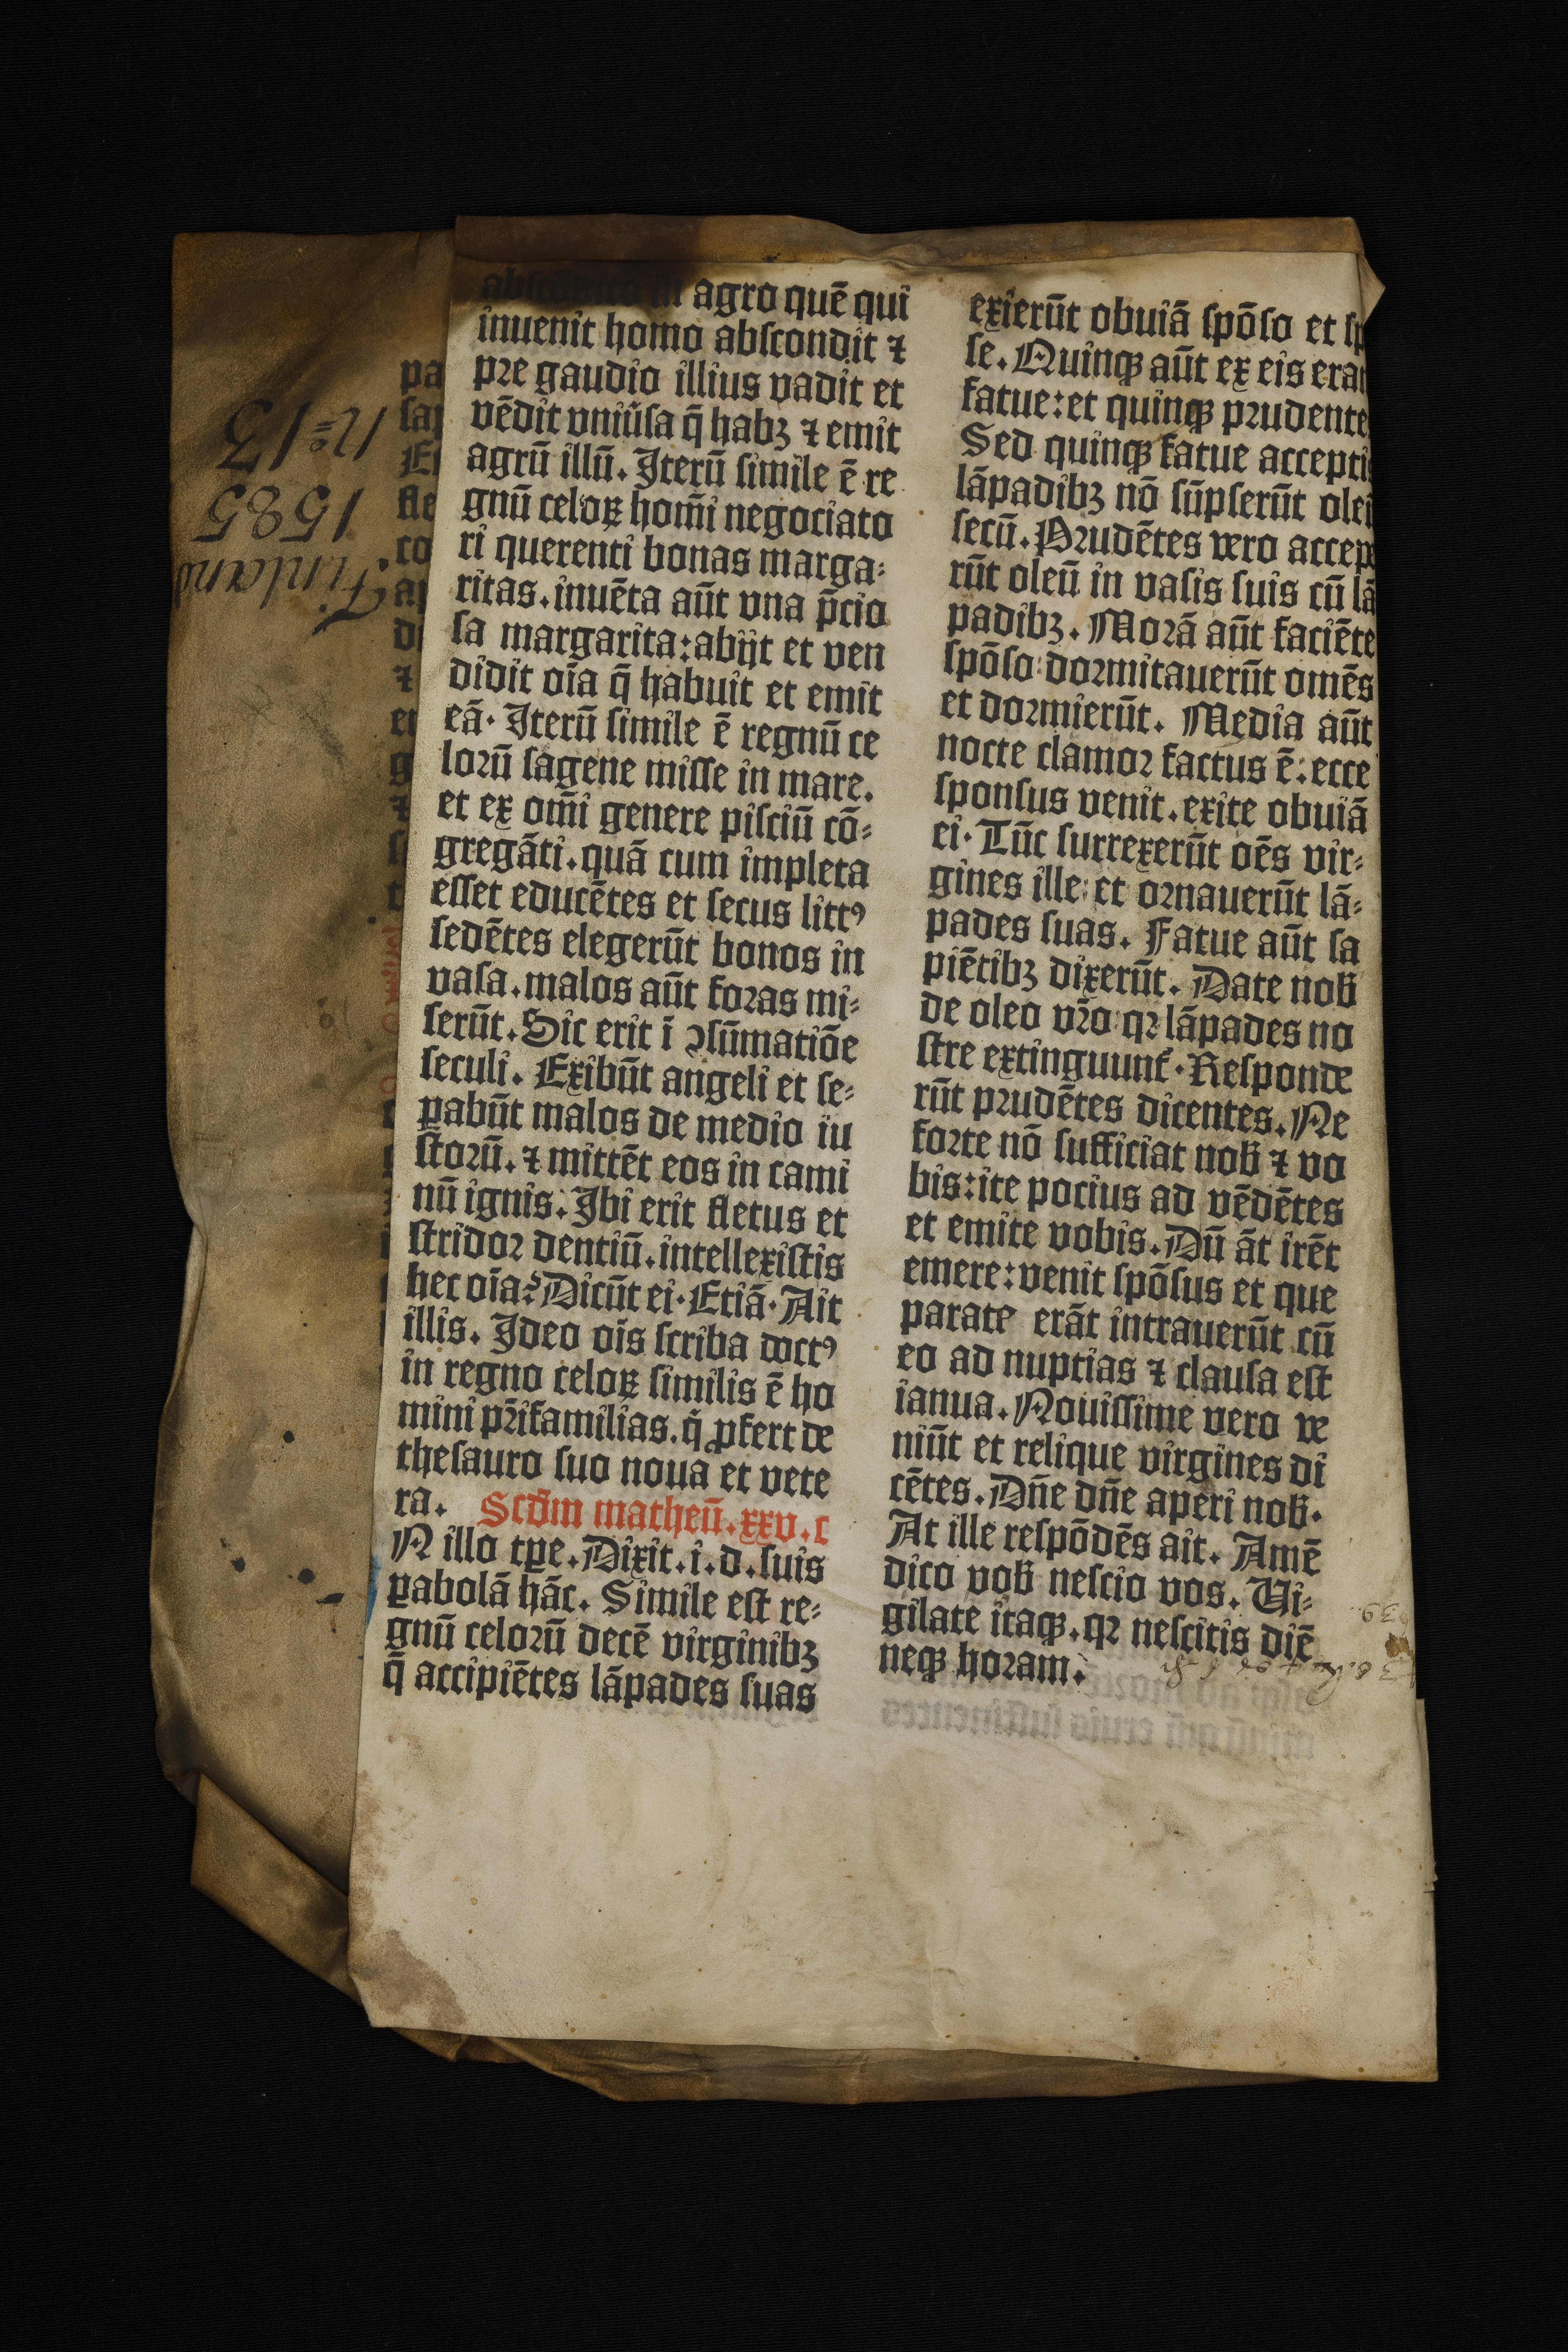 abscōdito in agro quē qui
inuenit homo abscondit ⁊
pre gaudio illius vadit et
vēdit vniūsa q̄ habꝫ ⁊ emit
agrū illū. Iterū simile ē re
gnū celoꝝ hom̄i negociato
ri querenti bonas marga⸗
ritas. inuēta aūt vna p̄cio
sa margarita: abijt et ven
didit oīa q̄ habuit et emit
eā. Iterū simile ē regnū ce
lorū sagene misse in mare.
et ex om̄i genere pisciū cō⸗
gregāti. quā cum impleta
esset educētes et secus littꝰ
sedētes elegerūt bonos in
vasa. malos aūt foras mi⸗
serūt. Sic erit ī ꝯsūmatiōe
seculi. Exibūt angeli et se⸗
ꝑabūt malos de medio iu
storū. ⁊ mittēt eos in cami
nū ignis. Ibi erit fletus et
stridor dentiū. intellexistis
hec oīa? Dicūt ei. Etiā. Ait
illis. Ideo oīs scriba doctꝰ
in regno celoꝝ similis ē ho
mini pr̄ifamilias. q̄ ꝓfert de
thesauro suo noua et vete
ra. Scd̄m matheū. xxv. c
N illo tꝑe. Dixit. i. d. suis
ꝑabolā hāc. Simile est re⸗
gnū celorū decē virginibꝫ
q̄ accipiētes lāpades suas
exierūt obuiā spōso et sp
se. Quinqꝫ aūt ex eis eran
fatue: et quinqꝫ prudente
Sed quinqꝫ fatue accepti
lāpadibꝫ nō sūpserūt oleū
secū. Prudētes vero accepe
rūt oleū in vasis suis cū lā
padibꝫ. Morā aūt faciēte
spōso: dormitauerūt omēs
et dormierūt. Media aūt
nocte clamor factus ē: ecce
sponsus venit. exite obuiā
ei. Tūc surrexerūt oēs vir⸗
gines ille: et ornauerūt lā⸗
pades suas. Fatue aūt sa
piētibꝫ dixerūt. Date nob̄
de oleo vr̄o: qꝛ lāpades no
stre extinguunt̄. Responde
rūt prudētes dicentes. Ne
forte nō sufficiat nob̄ ⁊ vo
bis: ite pocius ad vēdētes
et emite vobis. Dū āt irēt
emere: venit spōsus et que
parate erāt intrauerūt cū
eo ad nuptias ⁊ clausa est
ianua. Nouissime vero ve
niūt et relique virgines di
cētes. Dn̄e dn̄e aperi nob̄.
At ille respōdēs ait. Amē
dico vob̄ nescio vos. Ui⸗
gilate itaqꝫ. qꝛ nescitis diē
neqꝫ horam.
pa
sa
E
fle
co
a
di
⁊
en
g
⁊
s
t
Finland
1585
N:o 13